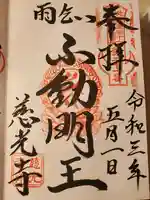 奉拝
令和三年
五月一日
不動明王
慈光寺